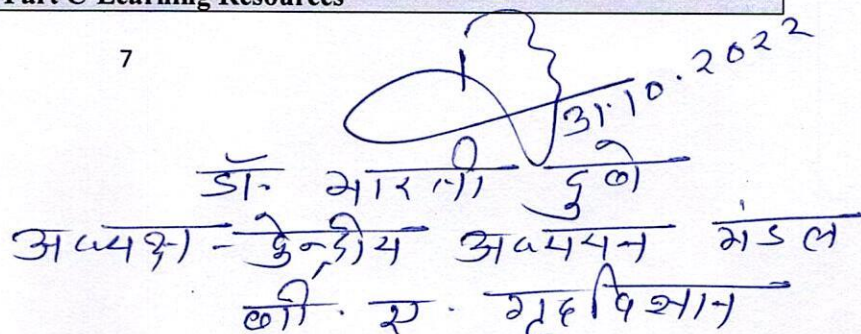 Part C-Learning Resources
7
31.10.2022
डॉ- भारती दुबे
अध्यक्ष - केन्द्रीय अध्ययन मंडल
बी. ए. गृहविज्ञान